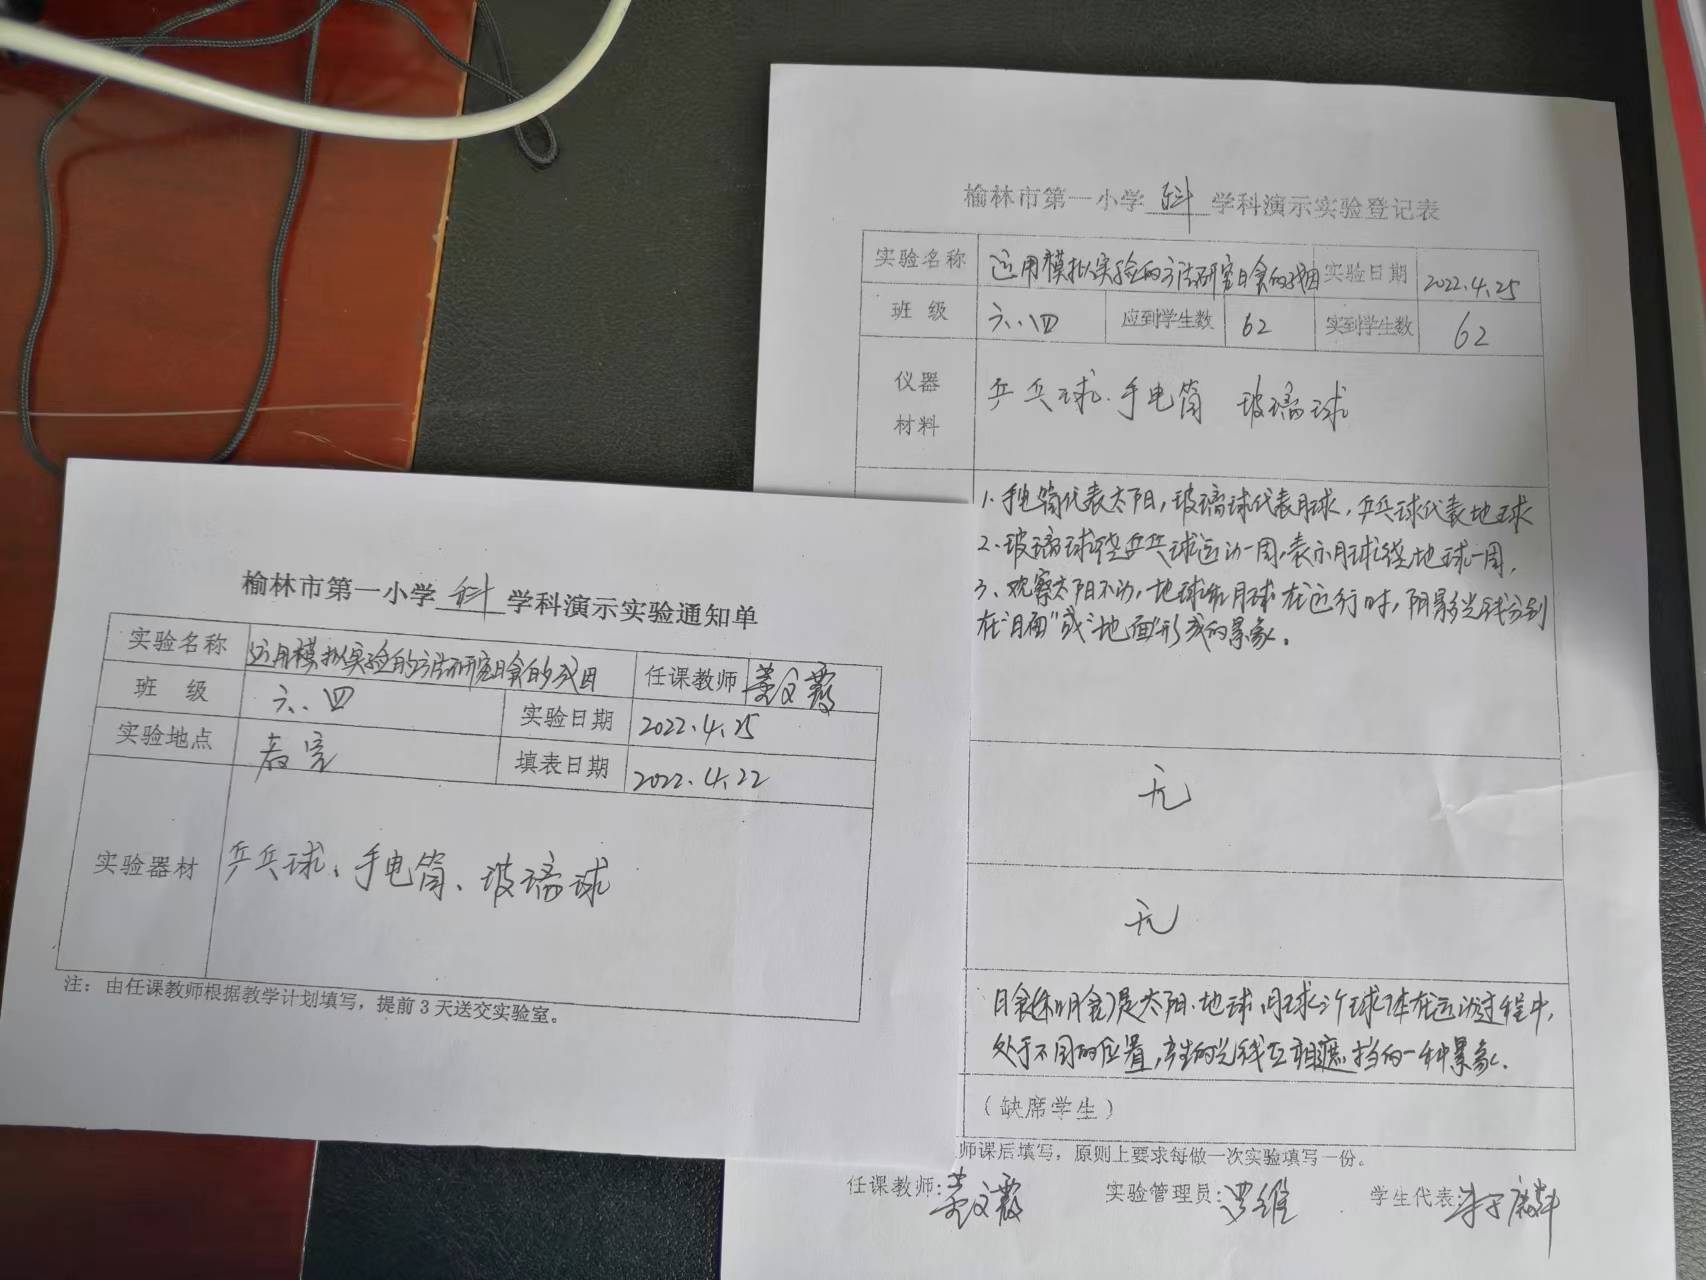 榆林市第一小学 科 学科演示实验通知单
实验名称 运用模拟实验的方法研究日食的成因 任课教师
班 级 六.四 实验日期 2022.4.25
实验地点 教室 填表日期 2022.4.22
实验器材 乒乓球、手电筒、玻璃球
注：由任课教师根据教学计划填写，提前3天送交实验室。
榆林市第一小学 科 学科演示实验登记表
实验名称 运用模拟实验的方法研究日食的成因 实验日期 2022.4.25
班 级 六.四 应到学生数 62 实到学生数 62
仪器
材料
乒乓球.手电筒 玻璃球
1.手电筒代表太阳，玻璃球代表月球，乒乓球代表地球
2.玻璃球绕乒乓球运动一周，表示月球绕地球一周，
3、观察太阳不动，地球和月球在运行时，阴影光线分别
在"月面"或"地面"形成的景象。
无
无
日食(和月食)是太阳.地球.月球三个球体在运动过程中，
处于不同的位置，产生的光线互相遮挡的一种景象。
（缺席学生）
师课后填写，原则上要求每做一次实验填写一份。
任课教师： 实验管理员：罗维 学生代表：